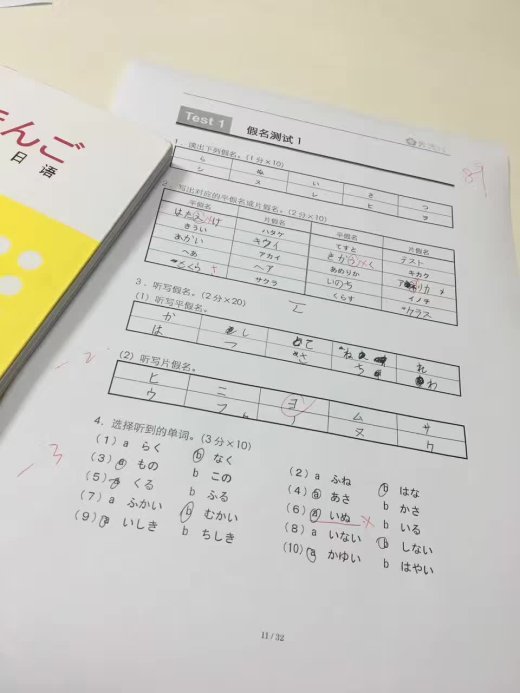 んご
日语
Test 1
假名测试 1
1. 读出下列假名。(1分×10)
ら ぬ い さ つ
シ ス レ ヒ ヲ
2. 写出对应的平假名或片假名。(2分×10)
平假名 片假名 平假名 片假名
ハタケ てすと テスト
きうい キウイ キカク
あかい アカイ あめりか
へあ ヘア いのち イノチ
さくら サクラ くらす クラス
3. 听写假名。(2分×20)
(1) 听写平假名。
か し て ね れ
は つ さ ち わ
(2) 听写片假名。
ヒ ニ ヨ ム サ
ウ フ ヌ ケ
2
4. 选择听到的单词。(3分×10)
3
(1) a らく b なく (2) a ふね b はな
(3) a もの b この (4) a あさ b かさ
(5) a くる b ふる (6) a いぬ b いる
(7) a ふかい b むかい (8) a いない b しない
(9) a いしき b ちしき (10) a かゆい b はやい
11 / 32